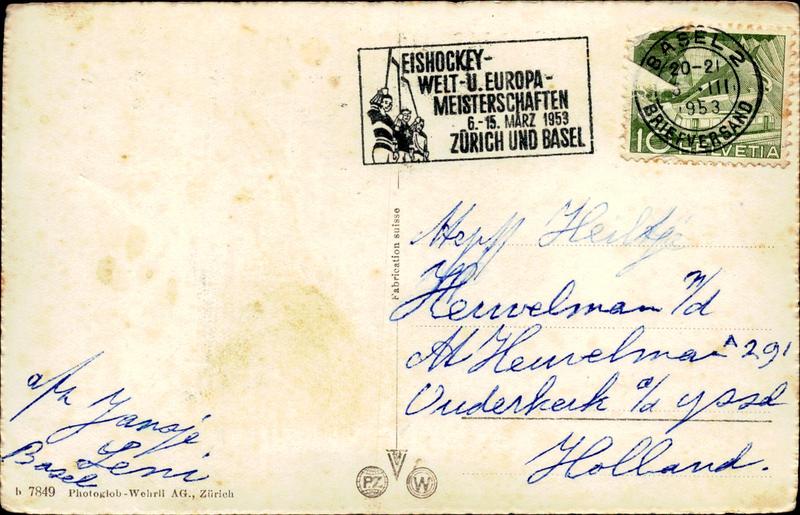 EISHOCKEY-
WELT-U. EUROPA-
MEISTERSCHAFTEN
6.-15. MÄRZ 1953
ZÜRICH UND BASEL
BASEL 2
20-21
III
1953
BRIEFVERSAND
10 HELVETIA
Fabrication suisse
Heuvelman
Heuvelman 291
Ouderkerk a/d yssel
Holland.
Jansje
Leni
Basel
b 7849 Photoglob-Wehrli AG., Zürich
PZ W